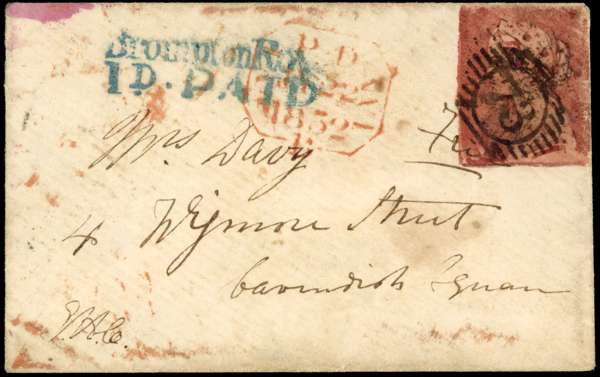 Brompton R.d
1D. PAID
P.D
1852
Mrs Davy
4 Wigmore Street
Cavendish Square